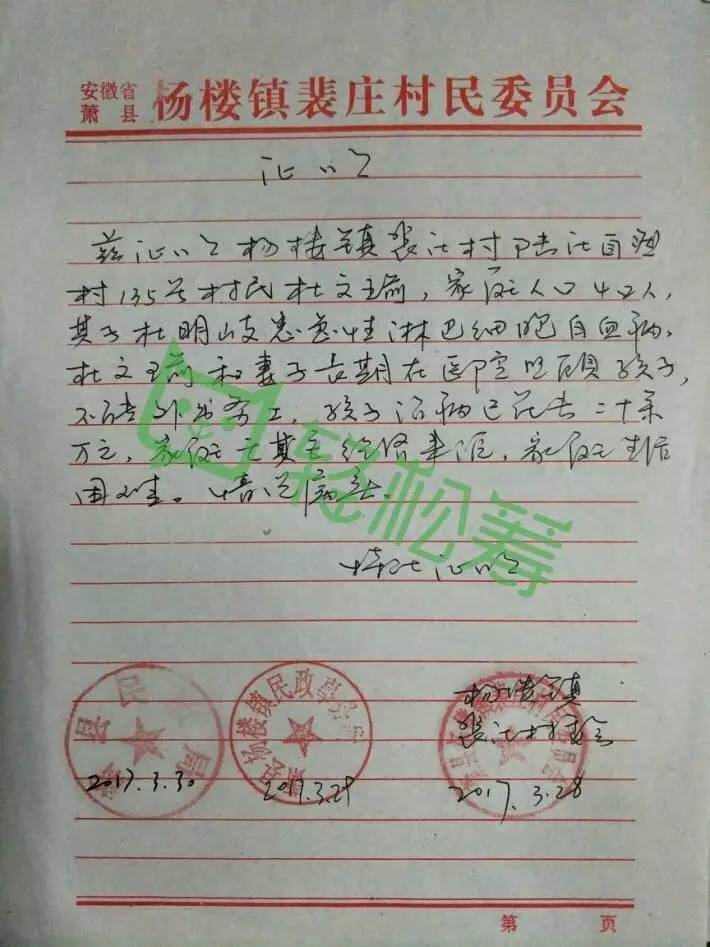 安徽省
萧县
杨楼镇裴庄村民委员会
证明
兹证明杨楼镇裴庄村陆庄自然
村135号村民杜文前，家庭人口4口人，
其子杜明岐患急性淋巴细胞白血病，
杜文前和妻子长期在医院照顾孩子，
不能外出务工，孩子治病已花去二十余
万元，家庭无其它经济来源，家庭生活
困难。情况属实。
特此证明
轻松筹
萧县民政局
2017.3.30
萧县杨楼镇民政
2017.3.29
杨楼镇
裴庄村委会
2017.3.28
第 页